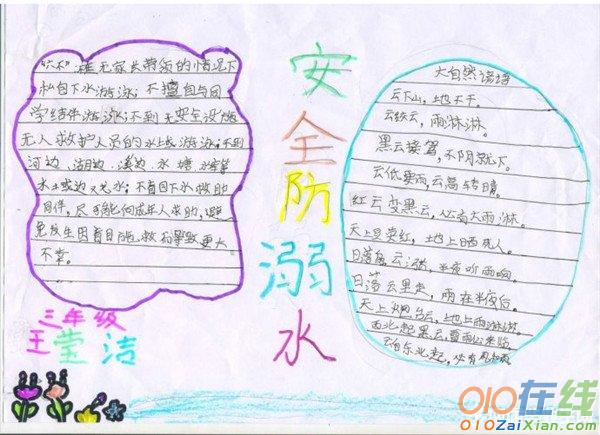 "六不"准无家长带领的情况下
私自下水游泳；不擅自与同
学结伴游泳；不到无安全设施
无人救护人员的水域游泳；不到
河边、湖边、溪边、水塘、水库等
不盲目下水救助
同伴，尽可能向成年人求助，避
免发生因盲目施救而导致更大
不幸。
三年级
王莹洁
安全防溺水
大自然谚语
云下山，地不干。
云绞云，雨淋淋。
黑云接驾，不阴就下。
云低要雨，云高转晴。
红云变黑云，必有大雨淋。
天上豆荚红，地上晒死人。
日落乌云涨，半夜听雨响。
日落云里走，雨在半夜后。
天上炮台云，地上雨淋淋。
西北起黑云，雷雨必来临
云自东北起，必有风和雨
010在线
010ZaiXian.com